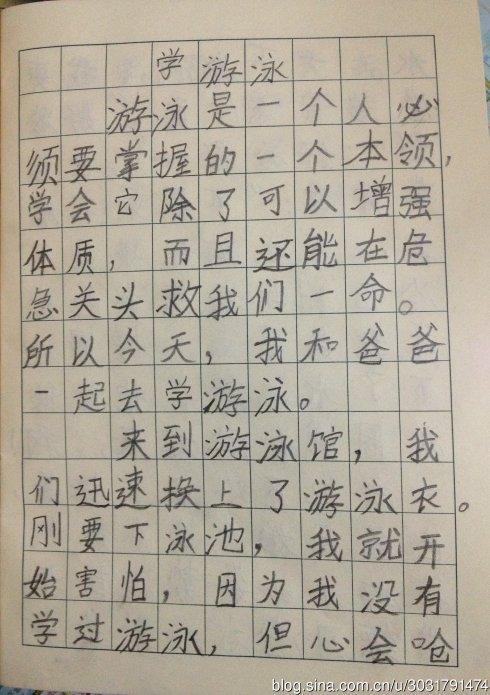 学游泳
游泳是一个人必
须要掌握的一个本领，
学会它除了可以增强
体质，而且还能在危
急关头救我们一命。
所以今天，我和爸爸
一起去学游泳。
来到游泳馆，我
们迅速换上了游泳衣。
刚要下泳池，我就开
始害怕，因为我没有
学过游泳，但心会呛
blog.sina.com.cn/u/3031791474